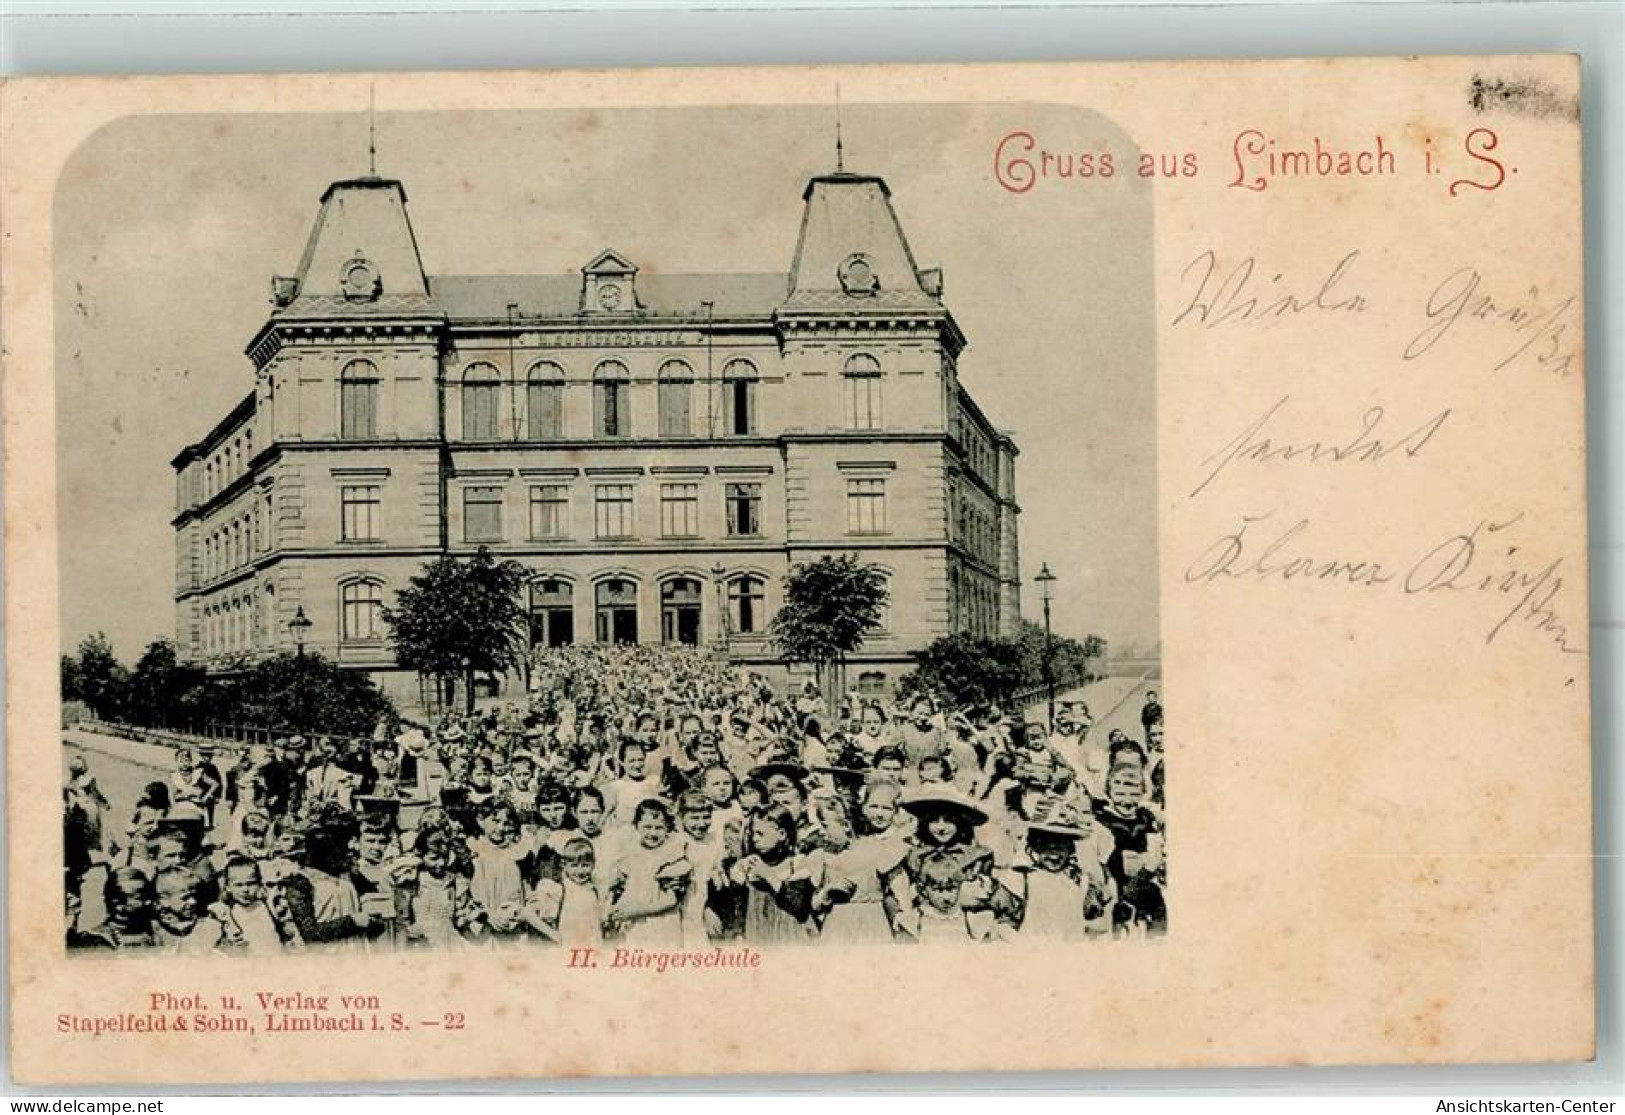 Gruss aus Limbach i. S.
II. BÜRGERSCHULE
Viele Grüße
sendet
II. Bürgerschule
Phot. u. Verlag von
Stapelfeld & Sohn, Limbach i. S. — 22
www.delcampe.net
Ansichtskarten-Center